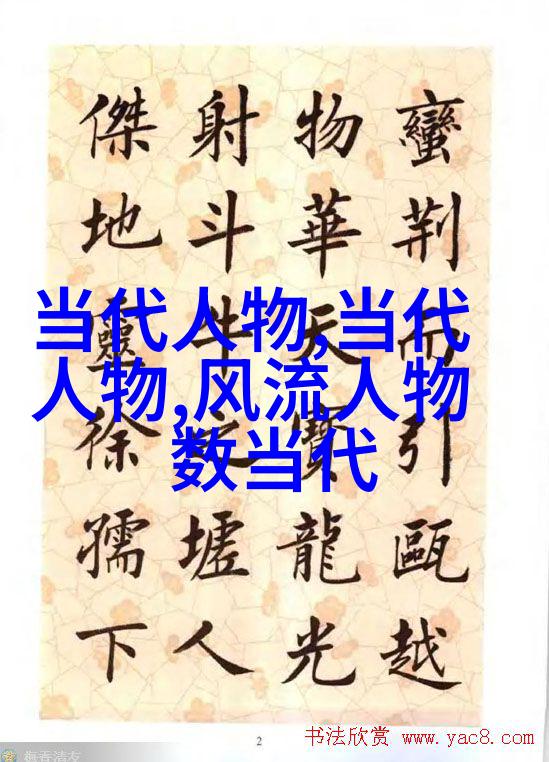 蠻荊而引甌越
物華天寶龍光
射斗牛之墟人
傑地靈徐孺下
当代人物,当代
人物,风流人物
数当代
2
书法欣赏 www.yac8.com